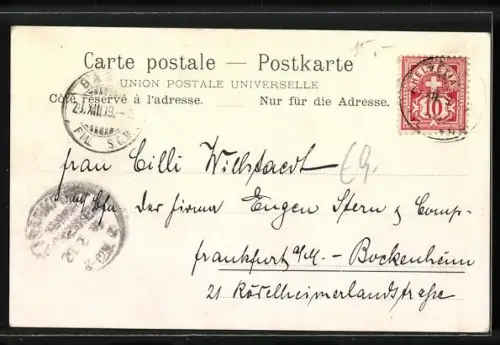 Carte postale — Postkarte
UNION POSTALE UNIVERSELLE
Côté réservé à l'adresse. Nur für die Adresse.
15.-
HELVETIA
10
FIL
69.
Frau Cilli Willstaedt
der Firma Eugen Stern & Comp.
Frankfurt a/M.- Bockenheim
21 Rödelheimerlandstraße